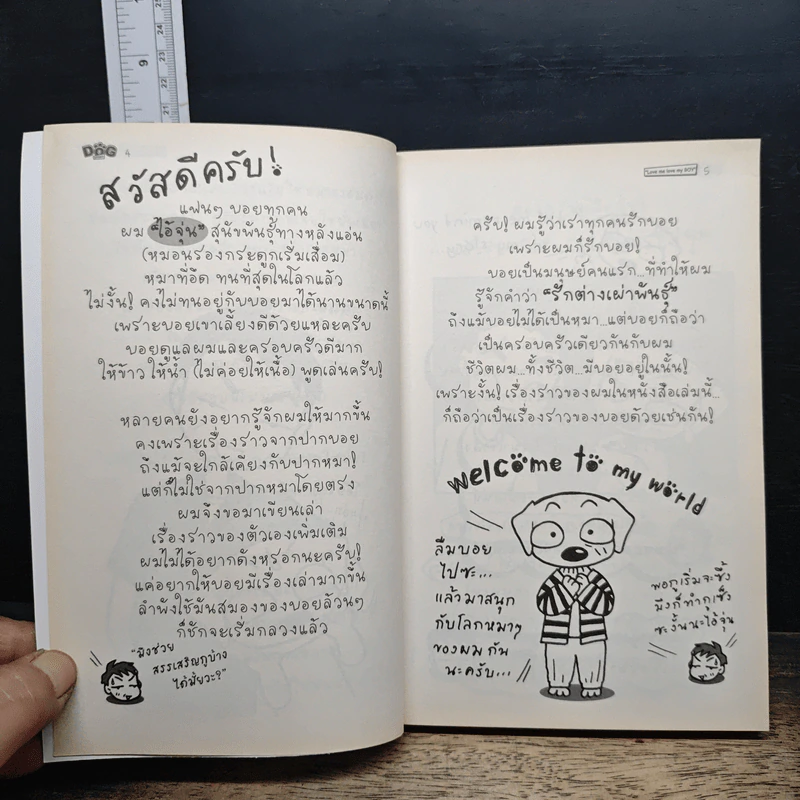 9
25
24
23
22
21
DOG 4
สวัสดีครับ!
แฟนๆ บอยทุกคน
ผม "ไอ้จุ่น" สุนัขพันธุ์ทางหลังแอ่น
(หมอนรองกระดูกเริ่มเสื่อม)
หมาที่อึด ทนที่สุดในโลกแล้ว
ไม่งั้น! คงไม่ทนอยู่กับบอยมาได้นานขนาดนี้
เพราะบอยเขาเลี้ยงดีด้วยแหละครับ
บอยดูแลผมและครอบครัวดีมาก
ให้ข้าว ให้น้ำ (ไม่ค่อยให้เนื้อ) พูดเล่นครับ!
หลายคนยังอยากรู้จักผมให้มากขึ้น
คงเพราะเรื่องราวจากปากบอย
ถึงแม้จะใกล้เคียงกับปากหมา!
แต่ก็ไม่ใช่จากปากหมาโดยตรง
ผมจึงขอมาเขียนเล่า
เรื่องราวของตัวเองเพิ่มเติม
ผมไม่ได้อยากดังหรอกนะครับ!
แค่อยากให้บอยมีเรื่องเล่ามากขึ้น
ลำพังใช้มันสมองของบอยล้วนๆ
ก็ชักจะเริ่มกลวงแล้ว
"มึงช่วย
สรรเสริญกูบ้าง
ได้มั้ยวะ?"
"Love me love my BOY" 5
ครับ! ผมรู้ว่าเราทุกคนรักบอย
เพราะผมก็รักบอย!
บอยเป็นมนุษย์คนแรก...ที่ทำให้ผม
รู้จักคำว่า "รักต่างเผ่าพันธุ์"
ถึงแม้บอยไม่ได้เป็นหมา...แต่บอยก็ถือว่า
เป็นครอบครัวเดียวกันกับผม
ชีวิตผม...ทั้งชีวิต...มีบอยอยู่ในนั้น!
เพราะงั้น! เรื่องราวของผมในหนังสือเล่มนี้...
ก็ถือว่าเป็นเรื่องราวของบอยด้วยเช่นกัน!
welcome to my world
ลืมบอย
ไปซะ...
แล้วมาสนุก
กับโลกหมาๆ
ของผม กัน
นะครับ...
พอกูเริ่มจะซึ้ง
มึงก็ทำกูเซ็ง
ซะงั้นนะไอ้จุ่น